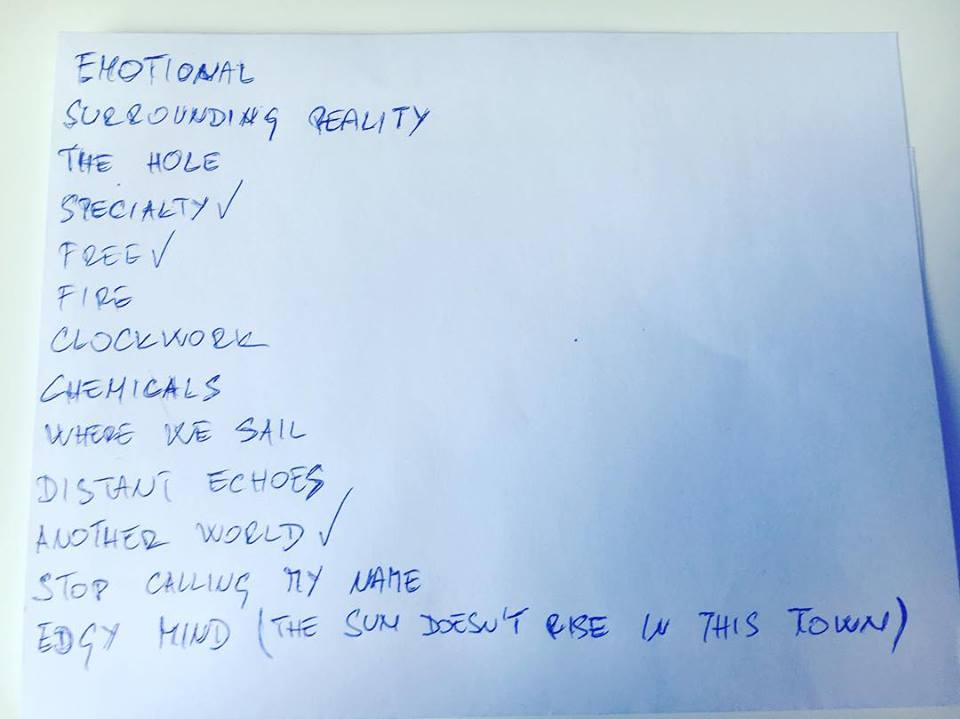 EMOTIONAL
SURROUNDING REALITY
THE HOLE
SPECIALTY ✓
FREE ✓
FIRE
CLOCKWORK
CHEMICALS
WHERE WE SAIL
DISTANT ECHOES
ANOTHER WORLD ✓
STOP CALLING MY NAME
EDGY MIND (THE SUN DOESN'T RISE IN THIS TOWN)